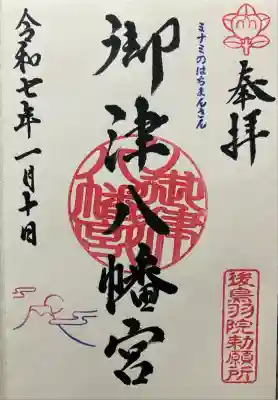 奉拝
後鳥羽院勅願所
ミナミのはちまんさん
御津八幡宮
御津八幡宮
令和七年一月十日